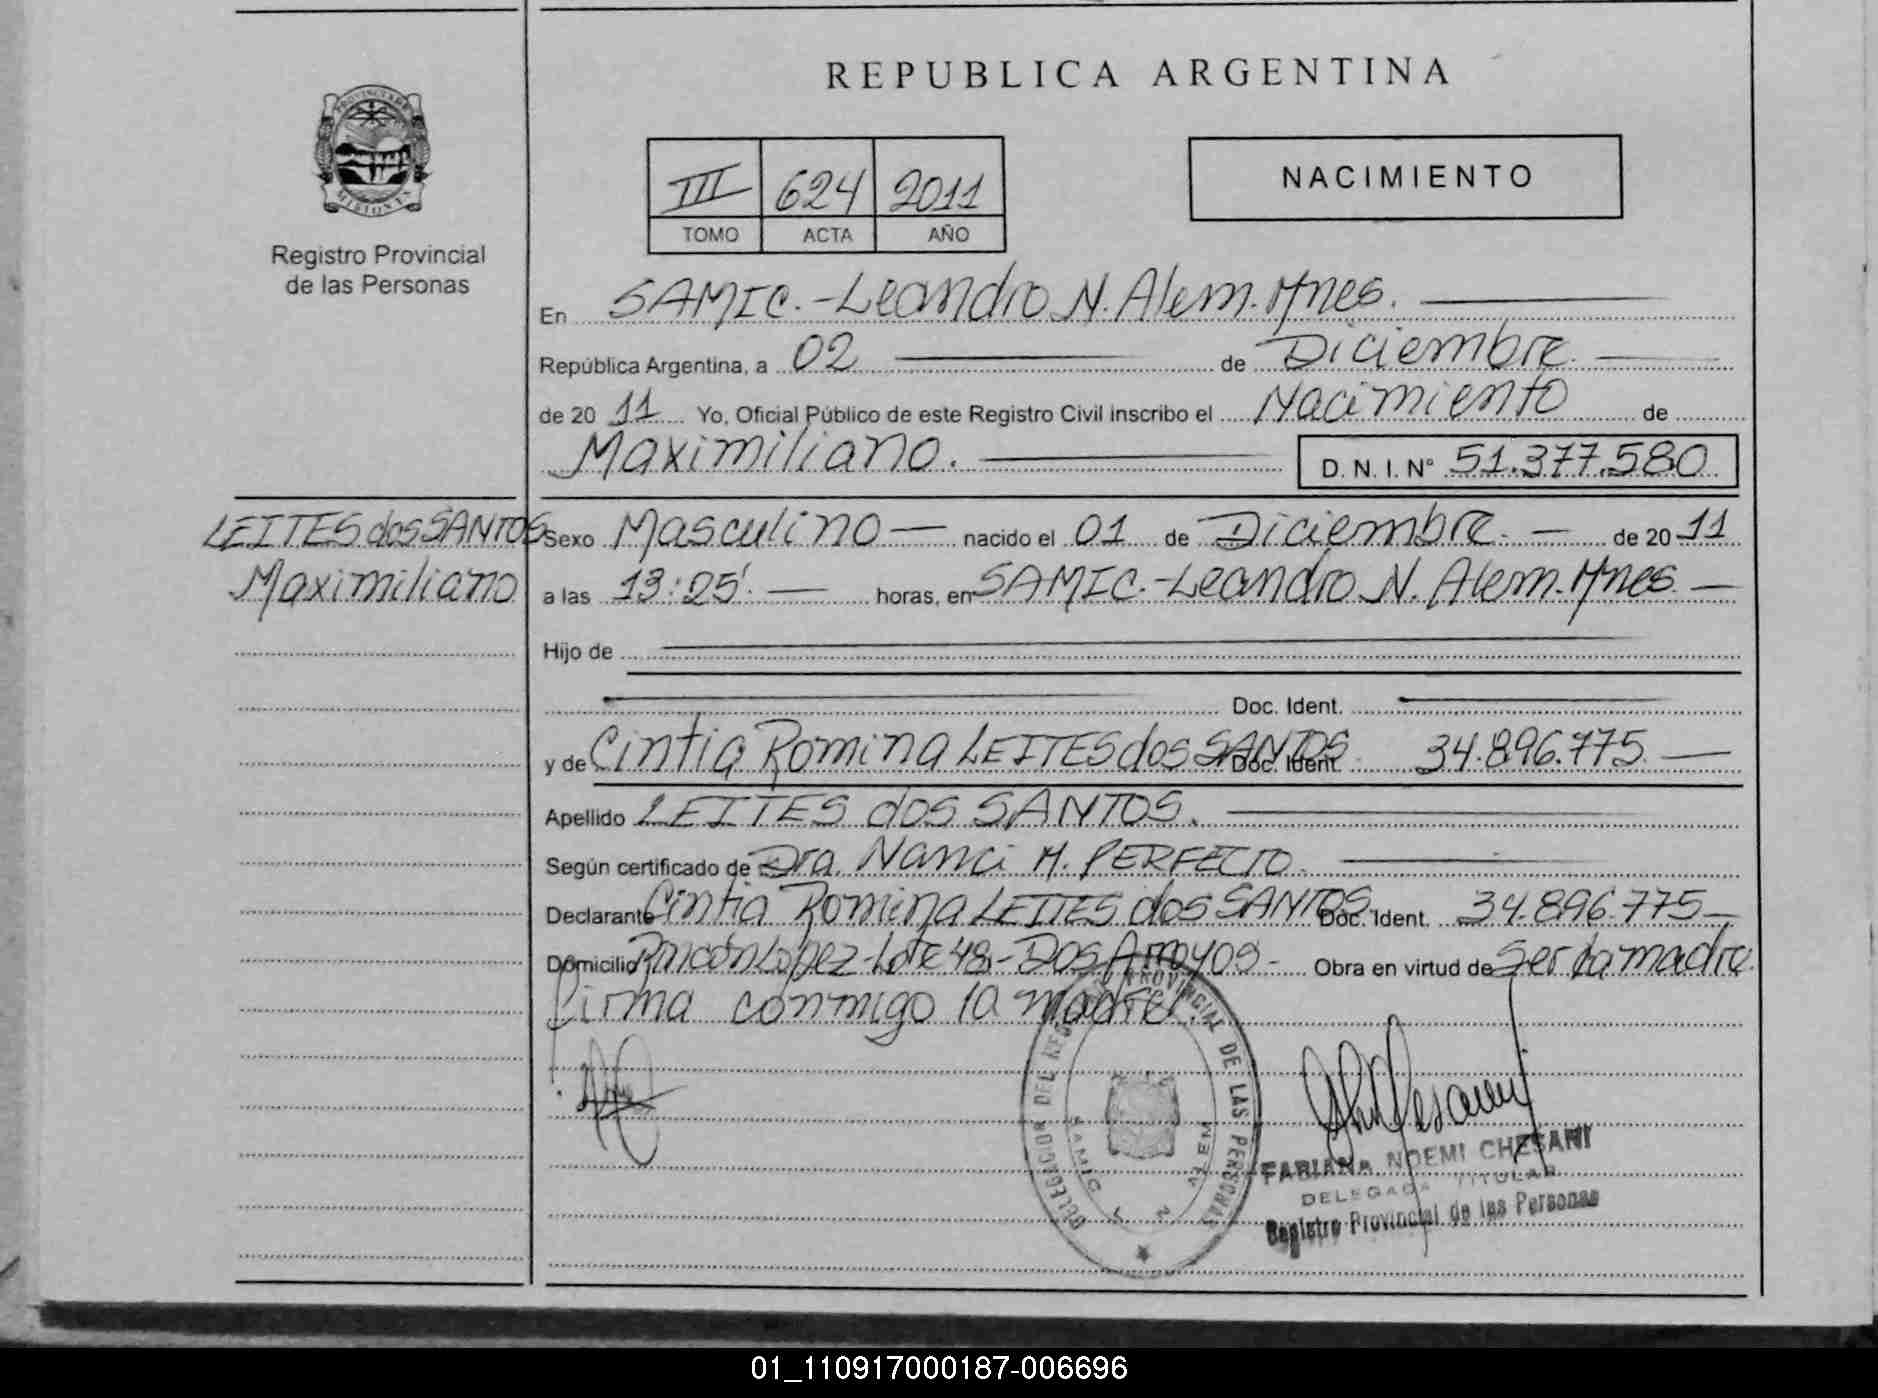 REPUBLICA ARGENTINA
PROVINCIA DE
MISIONES
Registro Provincial
de las Personas
III 624 2011
TOMO ACTA AÑO
NACIMIENTO
En SAMIC.-Leandro N. Alem. Mnes.
República Argentina, a 02 de Diciembre.
de 20 11 Yo, Oficial Público de este Registro Civil inscribo el Nacimiento de
Maximiliano. D.N.I. N° 51.377.580
LEITES dos SANTOS
Maximiliano
Sexo Masculino nacido el 01 de Diciembre. de 20 11
a las 13:25'. horas, en SAMIC.-Leandro N. Alem. Mnes.
Hijo de
Doc. Ident.
y de Cintia Romina LEITES dos SANTOS Doc. Ident. 34.896.775.
Apellido LEITES dos SANTOS.
Según certificado de Dra. Nanci M. PERFECTO.
Declarante Cintia Romina LEITES dos SANTOS. Doc. Ident. 34.896.775
Domicilio Rincón López-Lote 48.-Dos Arroyos- Obra en virtud de Ser la madre.
Firma conmigo la madre.
PROVINCIAL DE LAS PERSONAS
SAMIC L N ALEM
FABIANA NOEMI CHESANI
DELEGADA TITULAR
Registro Provincial de las Personas
01_110917000187-006696